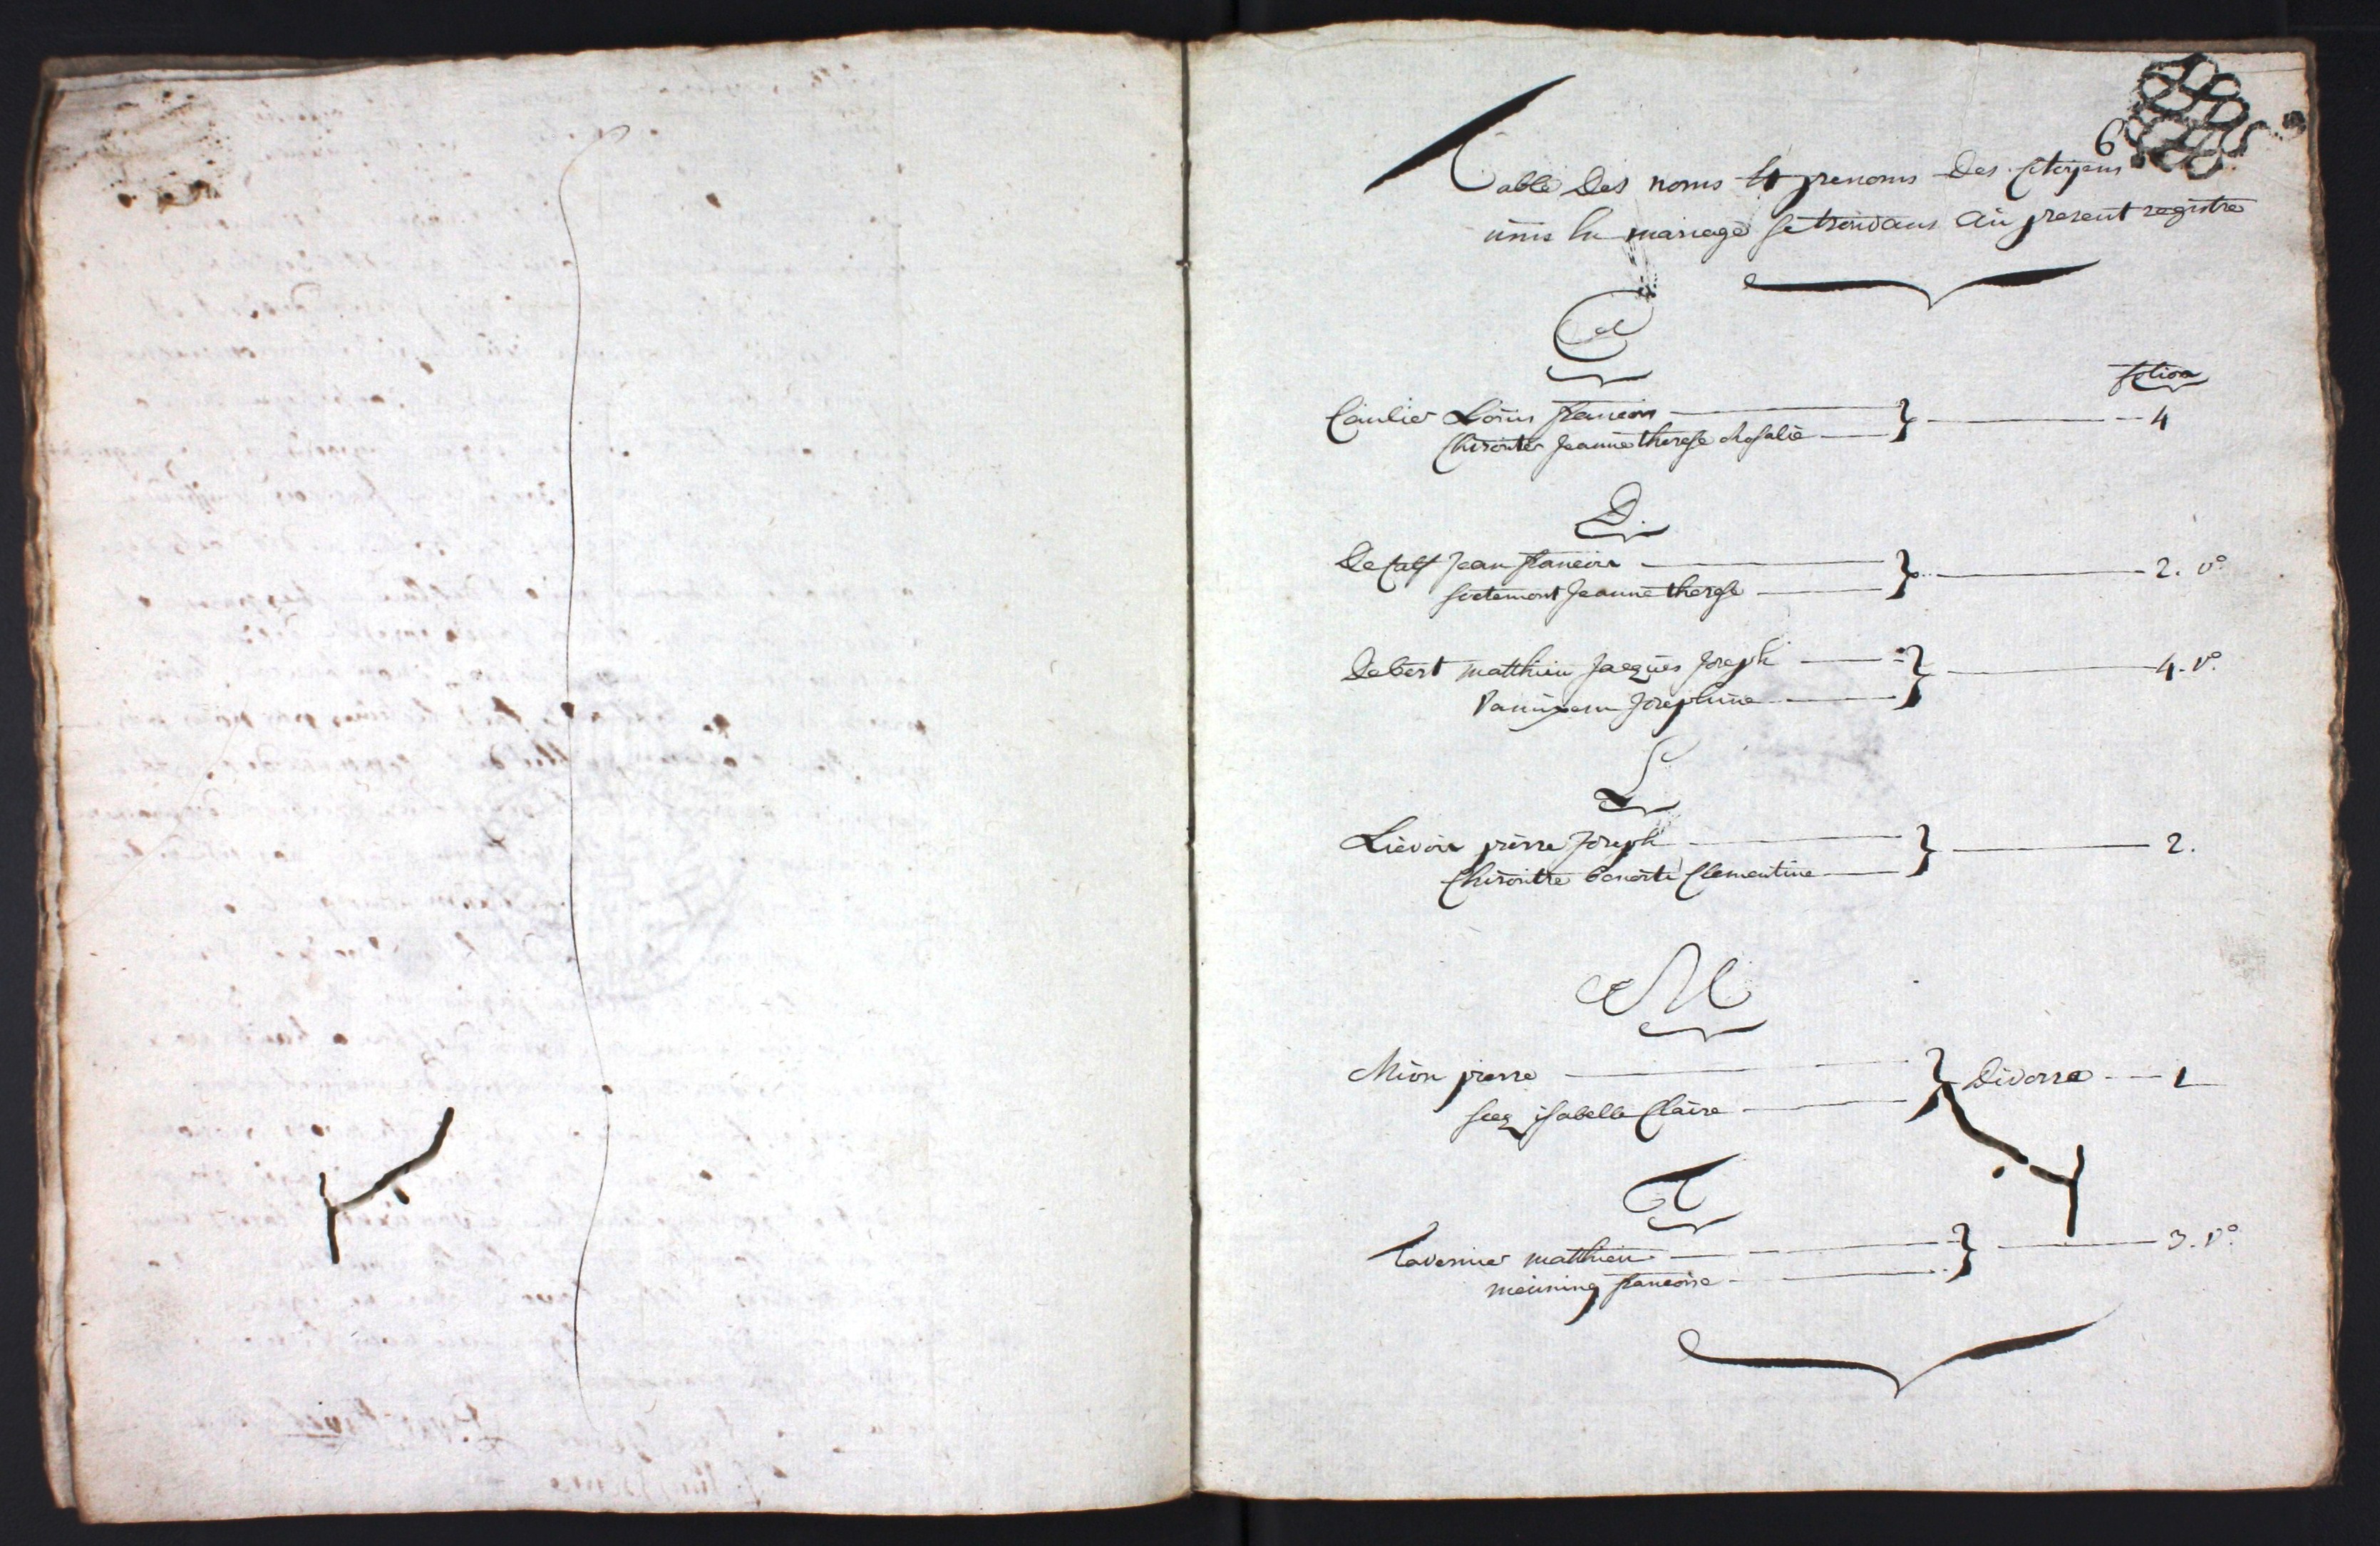 6
Table Des noms Et prenoms Des Citoyens
unis En mariage se trouvans Au present registre
C
folios
Caulier Louis francois 4
Chirouter Jeanne therese Rosalie
D.
De Calf Jean francois 2. v°
Soetemont Jeanne therese
Debert matthieu Jacques Joseph 4. v°.
Vanuxem Josephine
L
Liévoir pierre Joseph 2.
Chiroutre Benoite Clementine
M
Mion pierre Divorce 1
Seez isabelle Claire
T
Tavernier matthieu 3. v°.
meuninq francoise